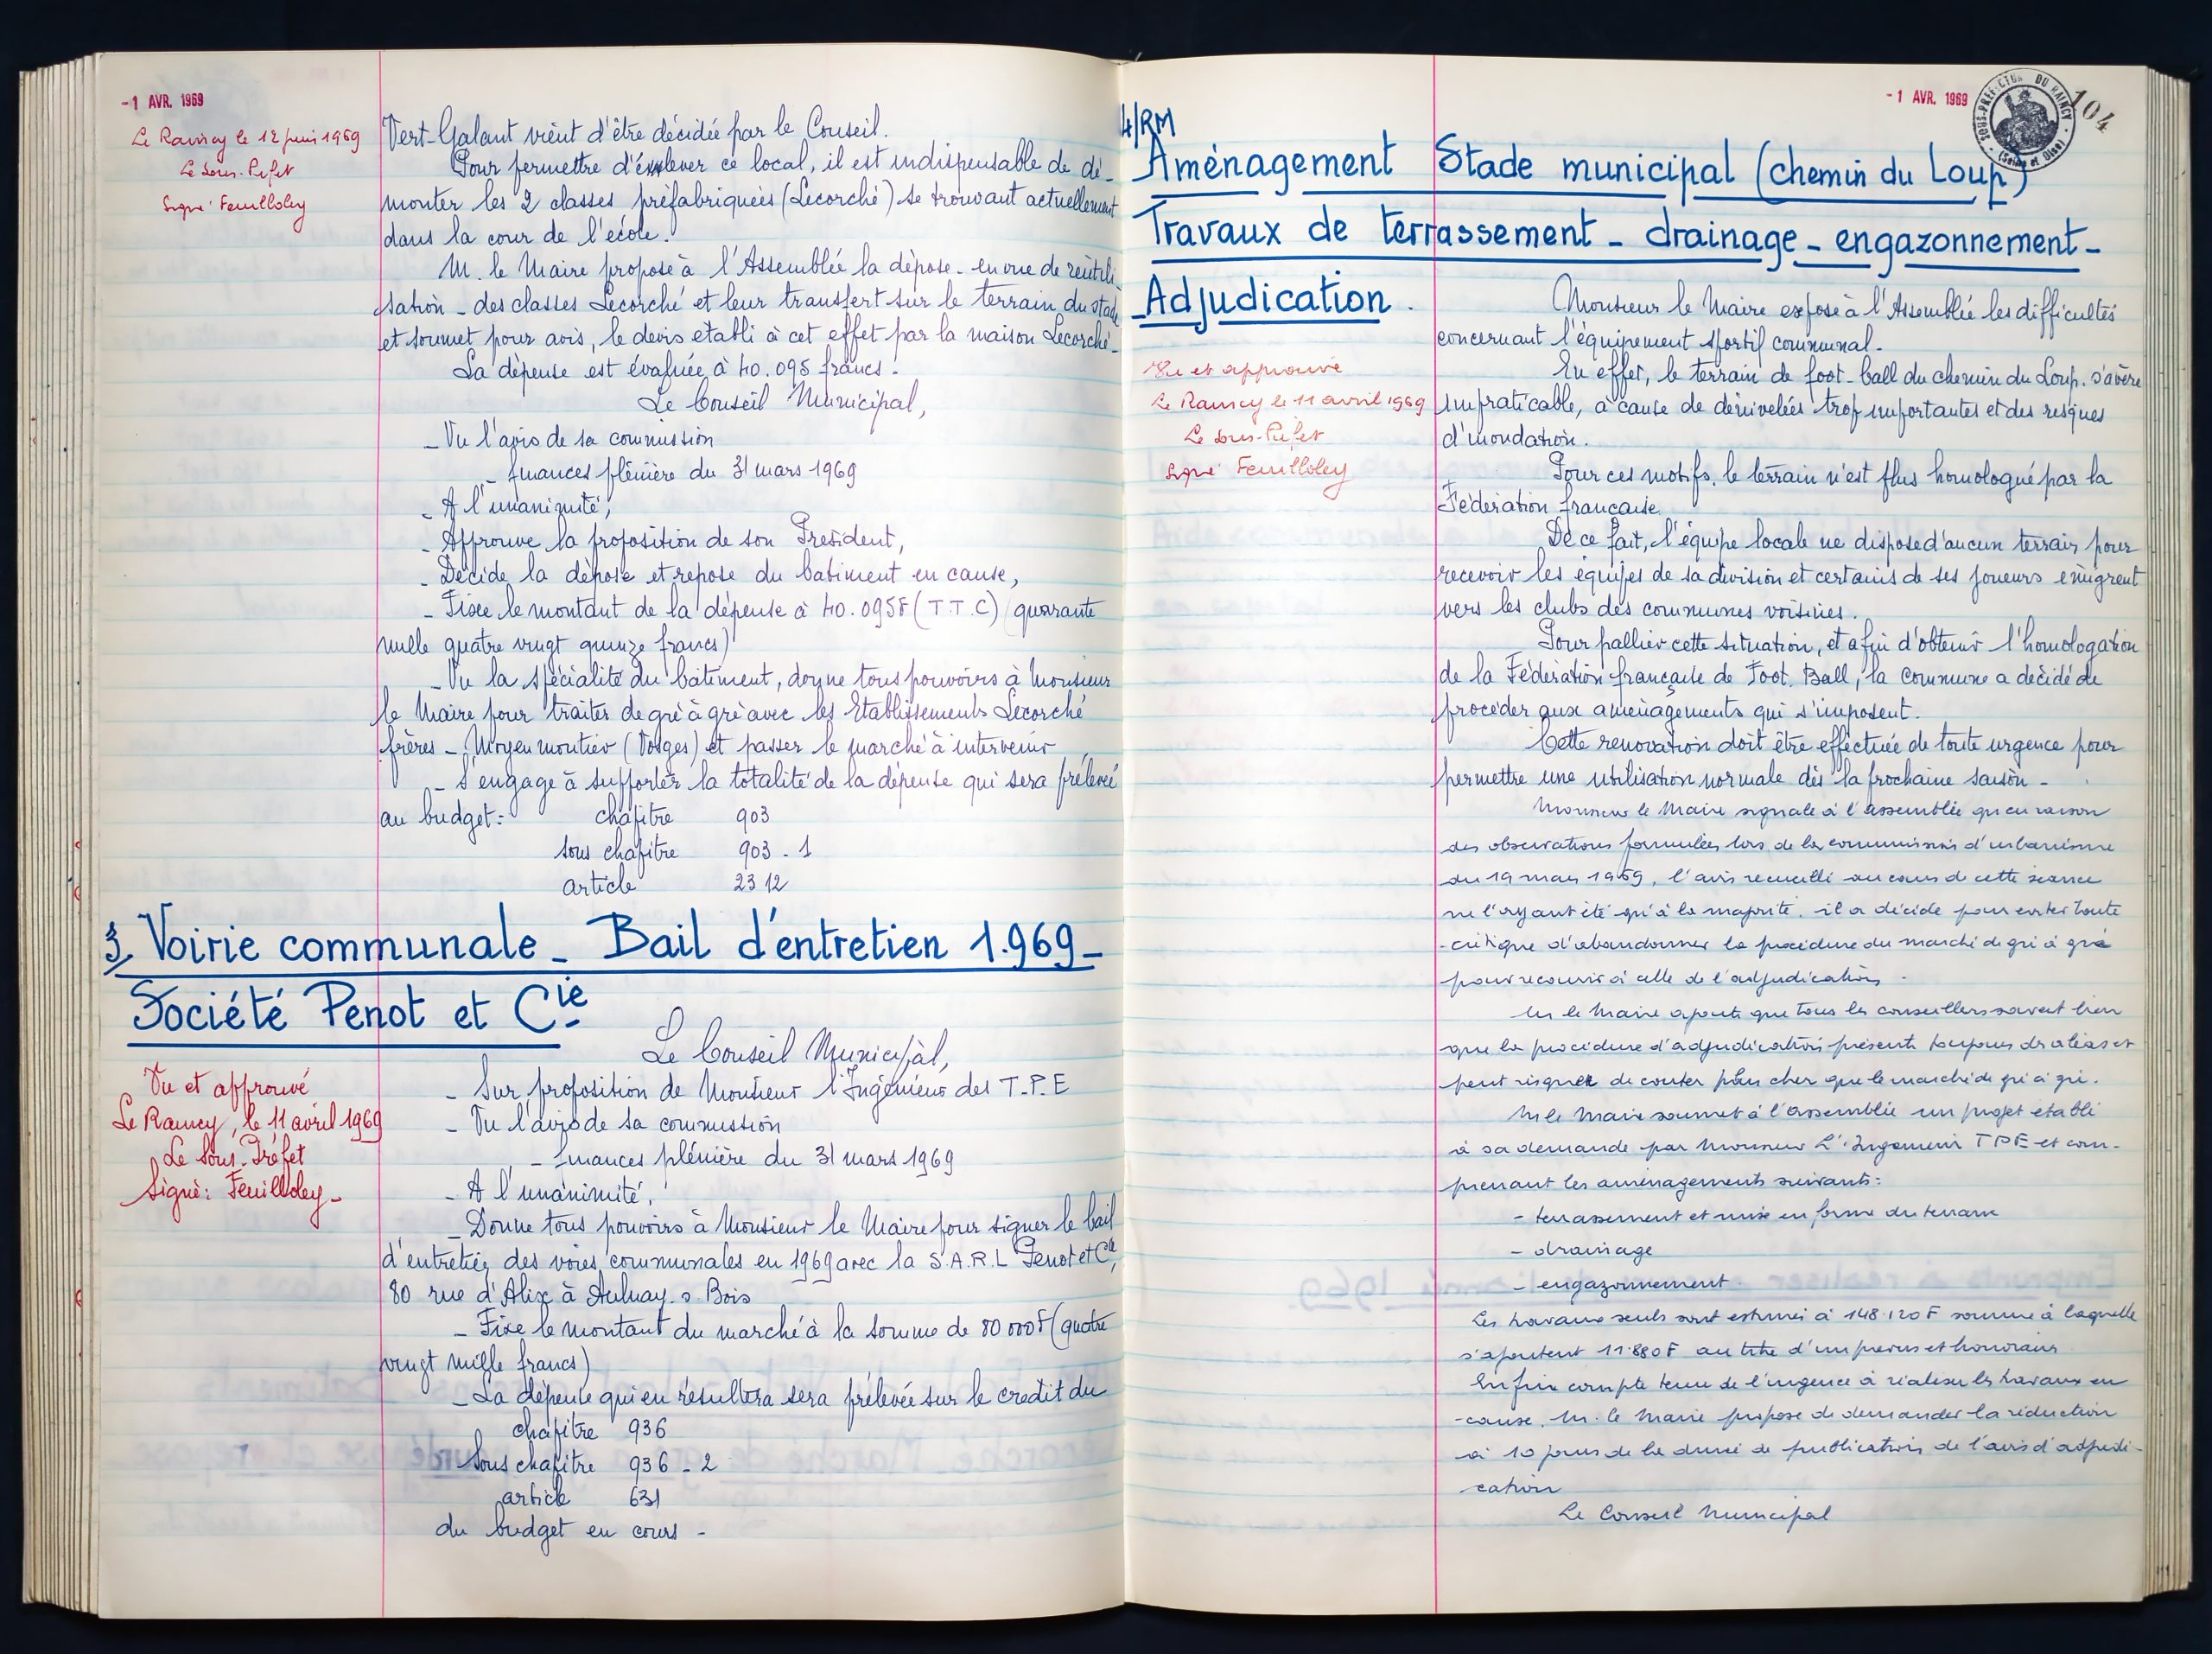 -1 AVR. 1969
Le Raincy le 12 juin 1969
Le Sous-Préfet
Signé: Feuilloley
Vert-Galant vient d'être décidée par le Conseil.
Pour permettre d'enlever ce local, il est indispensable de dé-
monter les 2 classes préfabriquées (Lecorché) se trouvant actuellement
dans la cour de l'école.
M. le Maire propose à l'Assemblée la dépose - en vue de réutili-
sation - des classes Lecorché et leur transfert sur le terrain du stade
et soumet pour avis, le devis etabli à cet effet par la maison Lecorché.
La dépense est évaluée à 40.095 francs.
Le Conseil Municipal,
- Vu l'avis de sa commission
- finances plénière du 31 mars 1969
- A l'unanimité,
- Approuve la proposition de son Président,
- Décide la dépose et repose du batiment en cause,
- Fixe le montant de la dépense à 40.095F (T.T.C) (quarante
mille quatre vingt quinze francs)
- Vu la spécialité du bâtiment, donne tous pouvoirs à Monsieur
le Maire pour traiter de gré à gré avec les Etablissements Lecorché
frères - Moyenmoutier (Vosges) et passer le marché à intervenir
- S'engage à supporter la totalité de la dépense qui sera prélevée
au budget: chapitre 903
sous chapitre 903 - 1
article 23 12
3/ Voirie communale - Bail d'entretien 1.969 -
Société Penot et Cie
Vu et approuvé
Le Raincy, le 11 avril 1969
Le Sous-Préfet
Signé: Feuilloley -
Le Conseil Municipal,
- Sur proposition de Monsieur l'Ingénieur des T.P.E
- Vu l'avis de sa commission
- finances plénière du 31 mars 1969
- A l'unanimité,
- Donne tous pouvoirs à Monsieur le Maire pour signer le bail
d'entretien des voies communales en 1969 avec la S.A.R.L Penot et Cie,
80 rue d'Alix à Aulnay. s. Bois
- Fixe le montant du marché à la somme de 80 000F (quatre
vingt mille francs)
- La dépense qui en résultera sera prélevée sur le credit du
chapitre 936
Sous chapitre 936 - 2
article 631
du budget en cours -
-1 AVR. 1969
SOUS-PRÉFECTURE DU RAINCY
(Seine et Oise)
104
4/RM
Aménagement Stade municipal (chemin du Loup)
Travaux de terrassement - drainage - engazonnement -
Adjudication.
Vu et approuvé
Le Raincy le 11 avril 1969
Le Sous-Préfet
Signé Feuilloley
Monsieur le Maire expose à l'Assemblée les difficultés
concernant l'équipement sportif communal.
En effet, le terrain de foot-ball du chemin du Loup s'avère
impraticable, à cause de dénivelées trop importantes et des risques
d'inondation.
Pour ces motifs, le terrain n'est plus homologué par la
Fédération française.
De ce fait, l'équipe locale ne dispose d'aucun terrain pour
recevoir les équipes de sa division et certains de ses joueurs émigrent
vers les clubs des communes voisines.
Pour pallier cette situation, et afin d'obtenir l'homologation
de la Fédération française de Foot. Ball, la commune a décidé de
procéder aux aménagements qui s'imposent.
Cette renovation doit être effectuée de toute urgence pour
permettre une utilisation normale dès la prochaine saison -
Monsieur le Maire signale à l'assemblée qu'en raison
des observations formulées lors de la commission d'urbanisme
du 19 mars 1969, l'avis recueilli au cours de cette séance
ne l'ayant été qu'à la majorité, il a décidé pour eviter toute
-critique d'abandonner la procédure du marché de gré à gré
pour recourir à celle de l'adjudication.
M le Maire ajoute que tous les conseillers savent bien
que la procédure d'adjudication présente toujours des aléas et
peut risquer de couter plus cher que le marché de gré à gré.
M le Maire soumet à l'assemblée un projet établi
à sa demande par Monsieur L'Ingenieur TPE et com-
prenant les aménagements suivants:
- terrassement et mise en forme du terrain
- drainage
- engazonnement
Les travaux seuls sont estimés à 148.120F somme à laquelle
s'ajoutent 11.880F au titre d'imprévus et honoraires
Enfin compte tenu de l'urgence à réaliser les travaux en
-cause, M. le Maire propose de demander la réduction
à 10 jours de la durée de publication de l'avis d'adjudi-
cation
Le Conseil Municipal